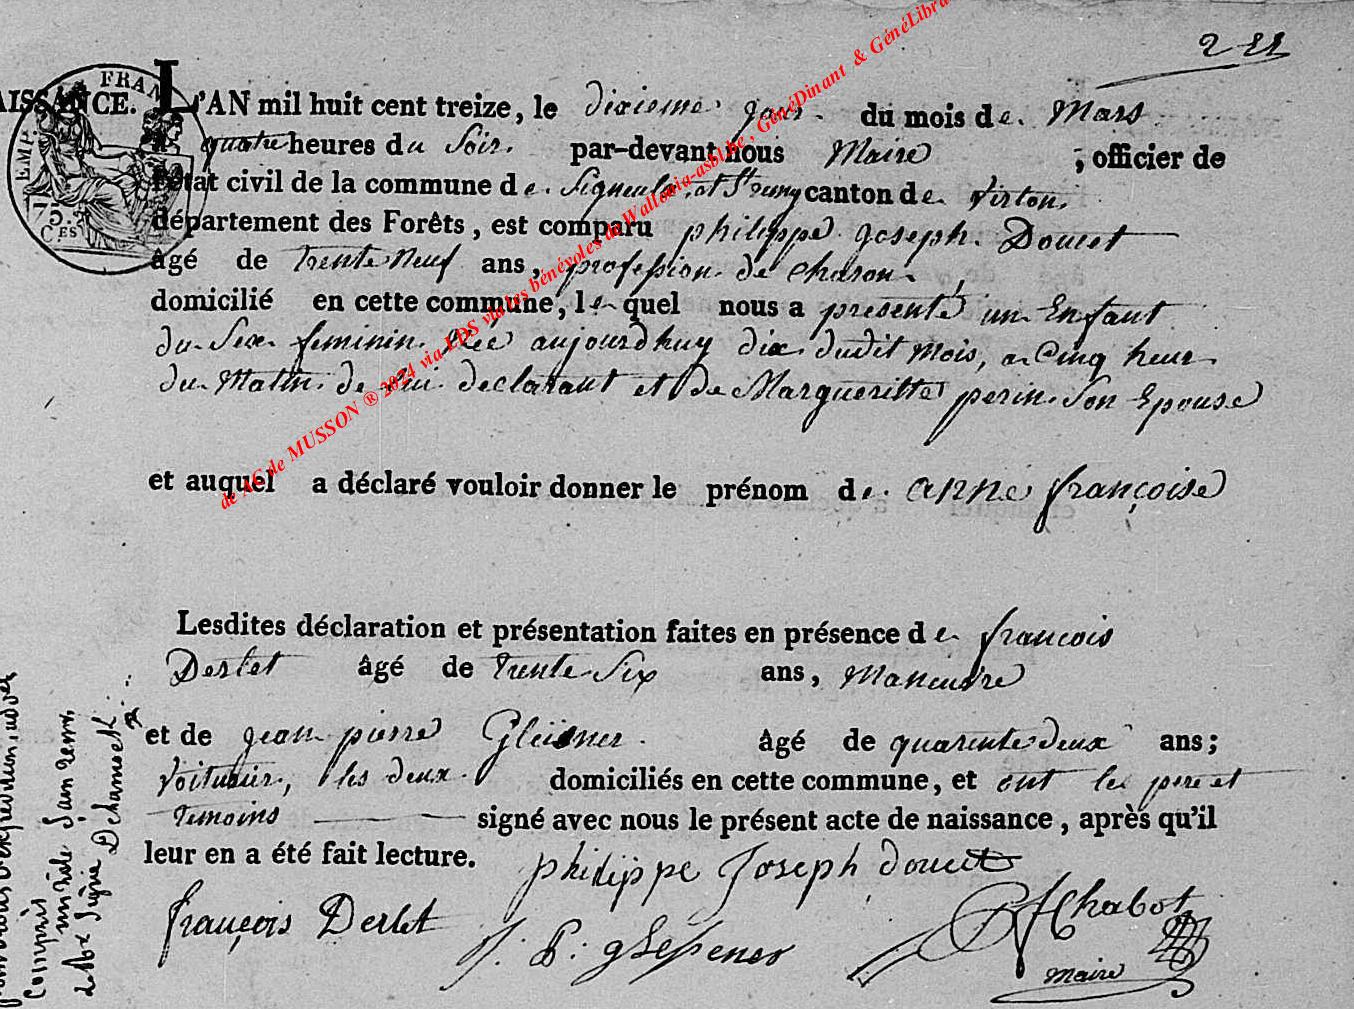 211
AISSANCE. L'AN mil huit cent treize, le dixieme jour du mois de Mars
a quatre heures du Soir. par-devant nous Maire ; officier de
l'état civil de la commune de Signeulx et St remy canton de Virton,
département des Forêts, est comparu philippe joseph Doucet
âgé de trente Neuf ans, profession de charon,
domicilié en cette commune, le quel nous a presenté un Enfant
du Sexe feminin Née aujourdhuy dix dudit mois, a Cinq heur
du Matin de lui declarant et de Margueritte perin Son Epouse
et auquel a déclaré vouloir donner le prénom de anne françoise
Lesdites déclaration et présentation faites en présence de francois
Derlet âgé de trente Six ans, Maneuvre
et de jean pierre Gleisner âgé de quarente deux ans;
Voiturier, les deux domiciliés en cette commune, et ont les pere et
temoins signé avec nous le présent acte de naissance, après qu'il
leur en a été fait lecture. philippe Joseph doucet
françois Derlet
J: P: glesener
Chabot
maire
FRAN
TEMP
75
C.ES
de AC de MUSSON ® 2024 via LDS via les bénévoles de Wallonia-asbl.be, GénéDinant & GénéLibra
compris
Signé Dehamack